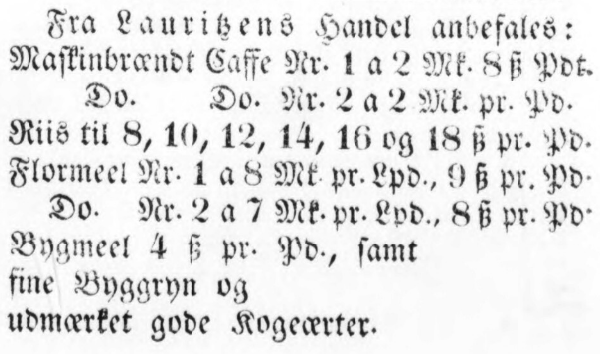 Fra Lauritzens Handel anbefales:
Maskinbrændt Caffe Nr. 1 a 2 Mk. 8 ß Pdt.
Do. Do. Nr. 2 a 2 Mk. pr. Pd.
Riis til 8, 10, 12, 14, 16 og 18 ß pr. Pd.
Flormeel Nr. 1 a 8 Mk. pr. Lpd., 9 ß pr. Pd.
Do. Nr. 2 a 7 Mk. pr. Lpd., 8 ß pr. Pd.
Bygmeel 4 ß pr. Pd., samt
fine Byggryn og
udmærket gode Kogeærter.